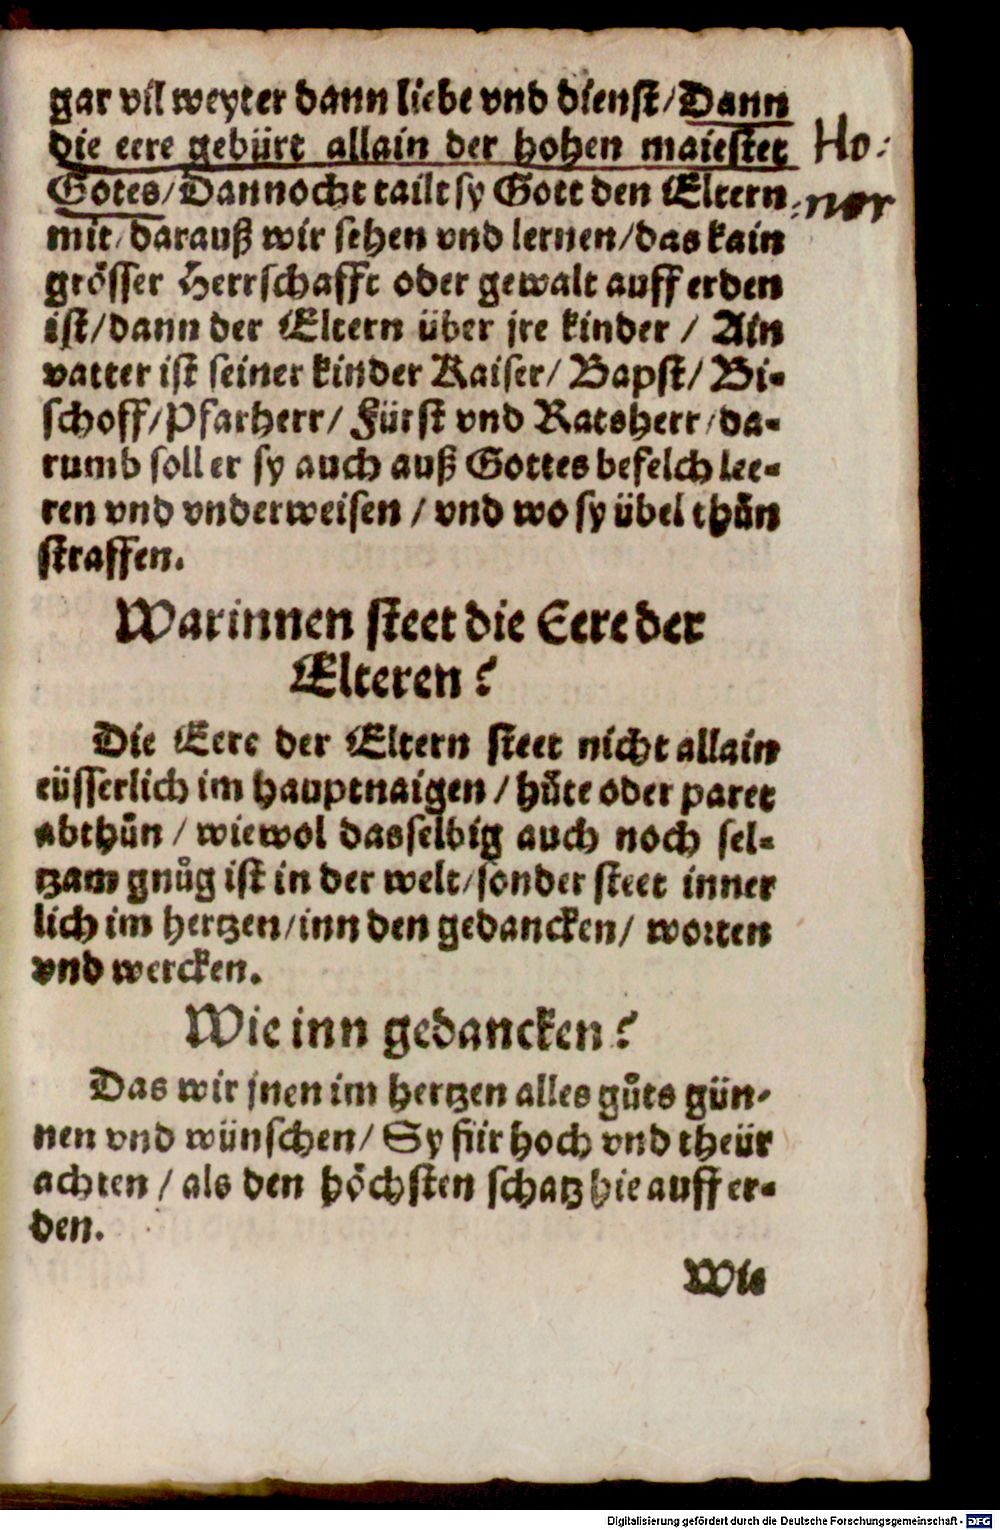 gar vil weyter dann liebe vnd dienst/Dann
die eere gebürt allain der hohen maiestet
Ho:
Gotes/Dannocht tailt sy Gott den Eltern
:nor
mit/darauß wir sehen vnd lernen/das kain
grösser Herrschafft oder gewalt auff erden
ist/dann der Eltern über jre kinder / Ain
vatter ist seiner kinder Kaiser/ Bapst/ Bi-
schoff/Pfarherr/ Fürst vnd Ratsherr/da-
rumb soll er sy auch auß Gottes befelch lee-
ren vnd vnderweisen / vnd wo sy übel thůn
straffen.
Warinnen steet die Eere der
Elteren?
Die Eere der Eltern steet nicht allain
eüsserlich im hauptnaigen / hůte oder paret
abthůn / wiewol dasselbig auch noch sel-
tzam gnůg ist in der welt/sonder steet inner
lich im hertzen/inn den gedancken/ worten
vnd wercken.
Wie inn gedancken?
Das wir jnen im hertzen alles gůts gün-
nen vnd wünschen/ Sy für hoch vnd theür
achten / als den höchsten schatz hie auff er-
den.
Wie
Digitalisierung gefördert durch die Deutsche Forschungsgemeinschaft - DFG